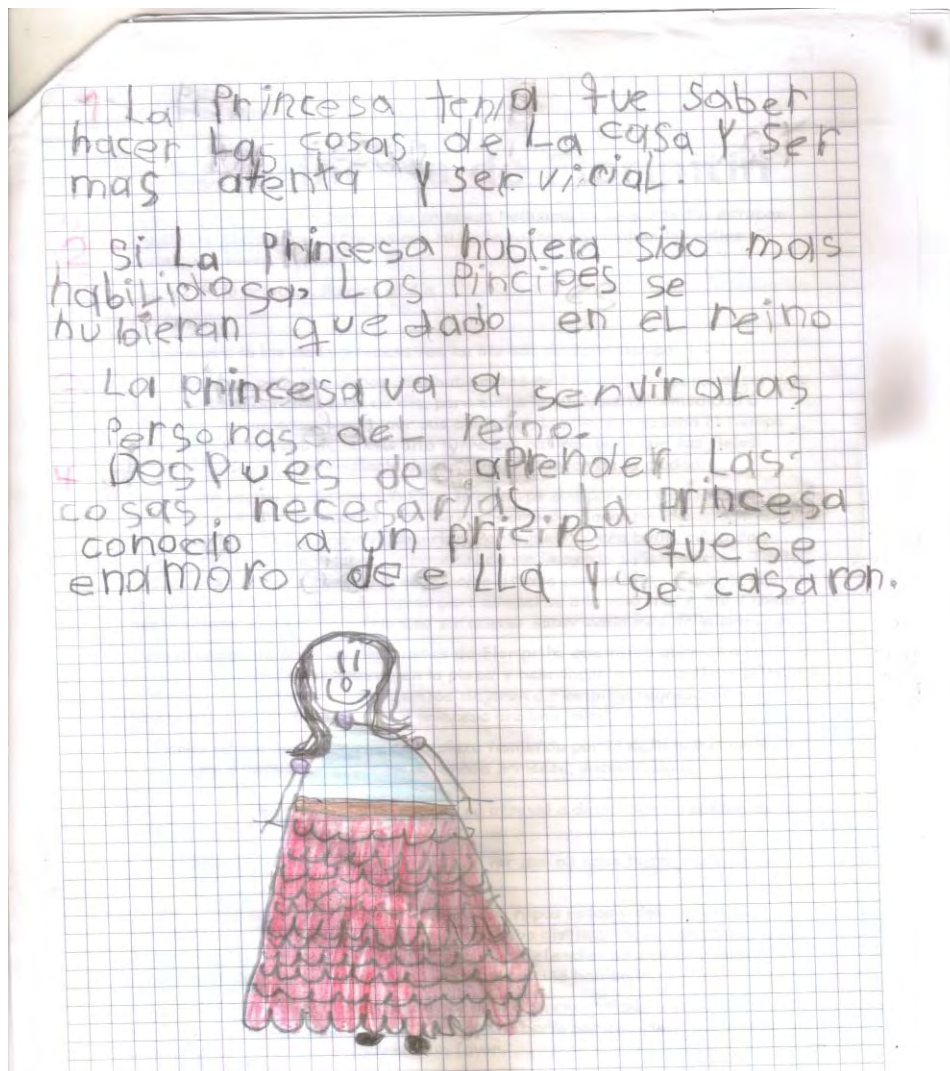 1 La Princesa tenia que saber
hacer Las cosas de La casa Y ser
mas atenta Y servicial.
2 Si La Princesa hubiera sido mas
habilidosa, Los Pincipes se
hubieran quedado en el reino
- La princesa va a servir a Las
Personas del reino.
4 Despues de aprender Las
cosas necesarias La princesa
conocio a un pricipe que se
enamoro de eLLa Y se casaron.